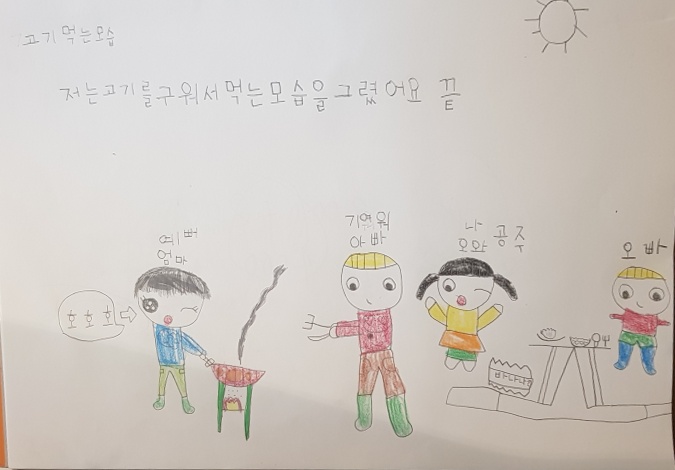 고기 먹는모습
저는고기를구워서먹는모습을그렸어요 끝
예뻐
엄마
호호호
기여워
아빠
나 공주
오와
오빠
바나나